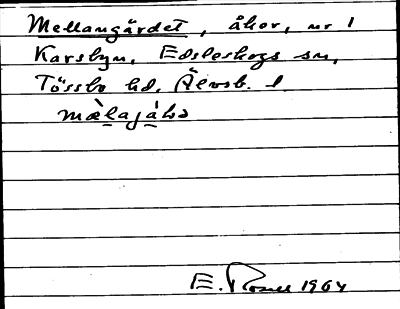 Mellangärdet, åker, nr 1
Karsbyn, Edsleskogs sn,
Tössbo hd, Älvsb. l.
mæ̀lajáḷə
E. Rosell 1964